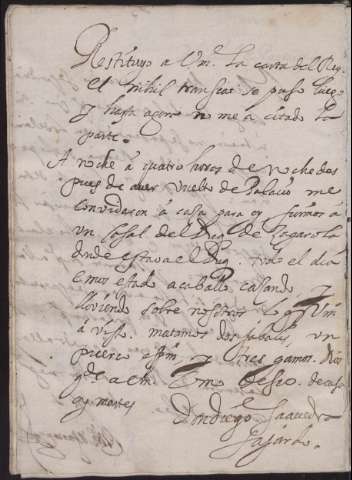 Restituyo a Vm. la carta del Rey
el nihil transeat se puso luego
y hasta agora no me a citado la
parte.
A noche à quatro horas de noche des
pues de aver vuelto de Palacio me
convidaron à casa para oy fuimos à
un Casal del de
donde estava el todo el dia
emos estado acaballo casando y
lloviendo sobre nosotros lo q Vm
à visto. matamos dos Jabalis, un
puerco espin y tres gamos. Dios
gde a Vm como deseo. de casa
oy martes
Don Diego Saavedra
Fajardo.